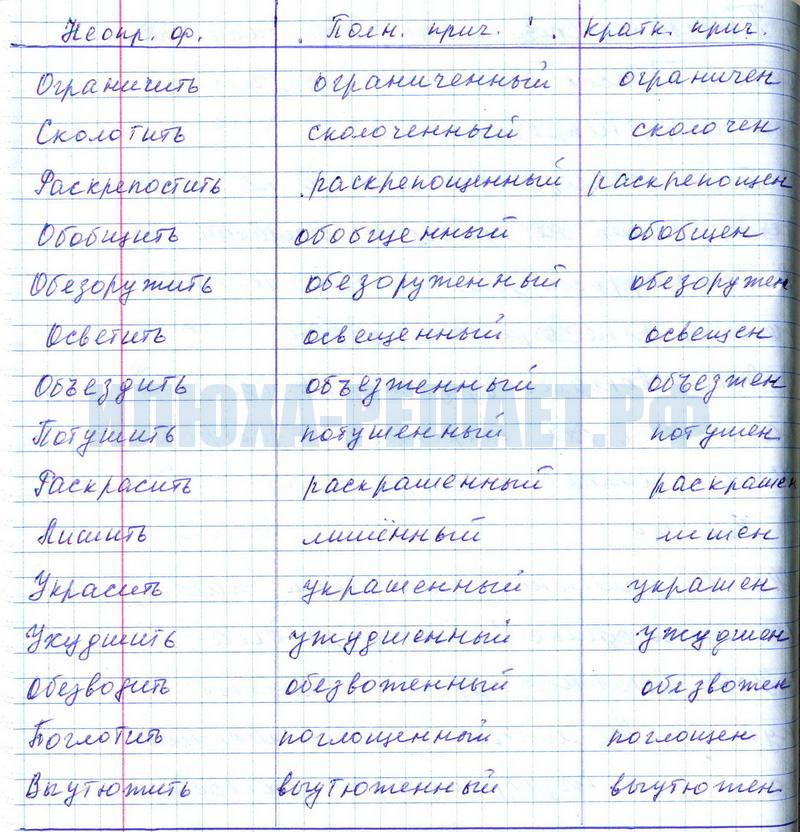 Неопр. ф. Полн. прич. кратк. прич.
Ограничить ограниченный ограничен
Сколотить сколоченный сколочен
Раскрепостить раскрепощенный раскрепощен
Обобщить обобщенный обобщен
Обезоружить обезоруженный обезоружен
Осветить освещенный освещен
Объездить объезженный объезжен
ИЛЮХА-РЕШАЕТ.РФ
Потушить потушенный потушен
Раскрасить раскрашенный раскрашен
Лишить лишённый лишён
Украсить украшенный украшен
Ухудшить ужудшенный ужудшен
Обезводить обезвоженный обезвожен
Поглотить поглощенный поглощен
Выутюжить выутюженный выутюжен